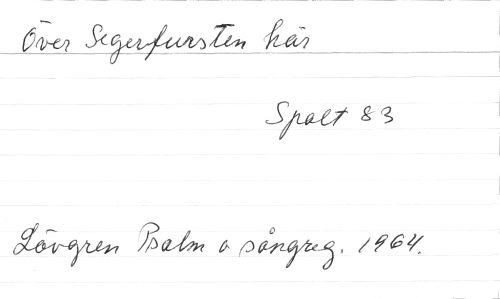 Över Segerfursten här
Spalt 83
Lövgren Psalm o sångreg. 1964.